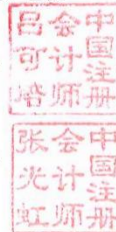 中国注册
会计师
吕可
中国注册
会计师
张光虹